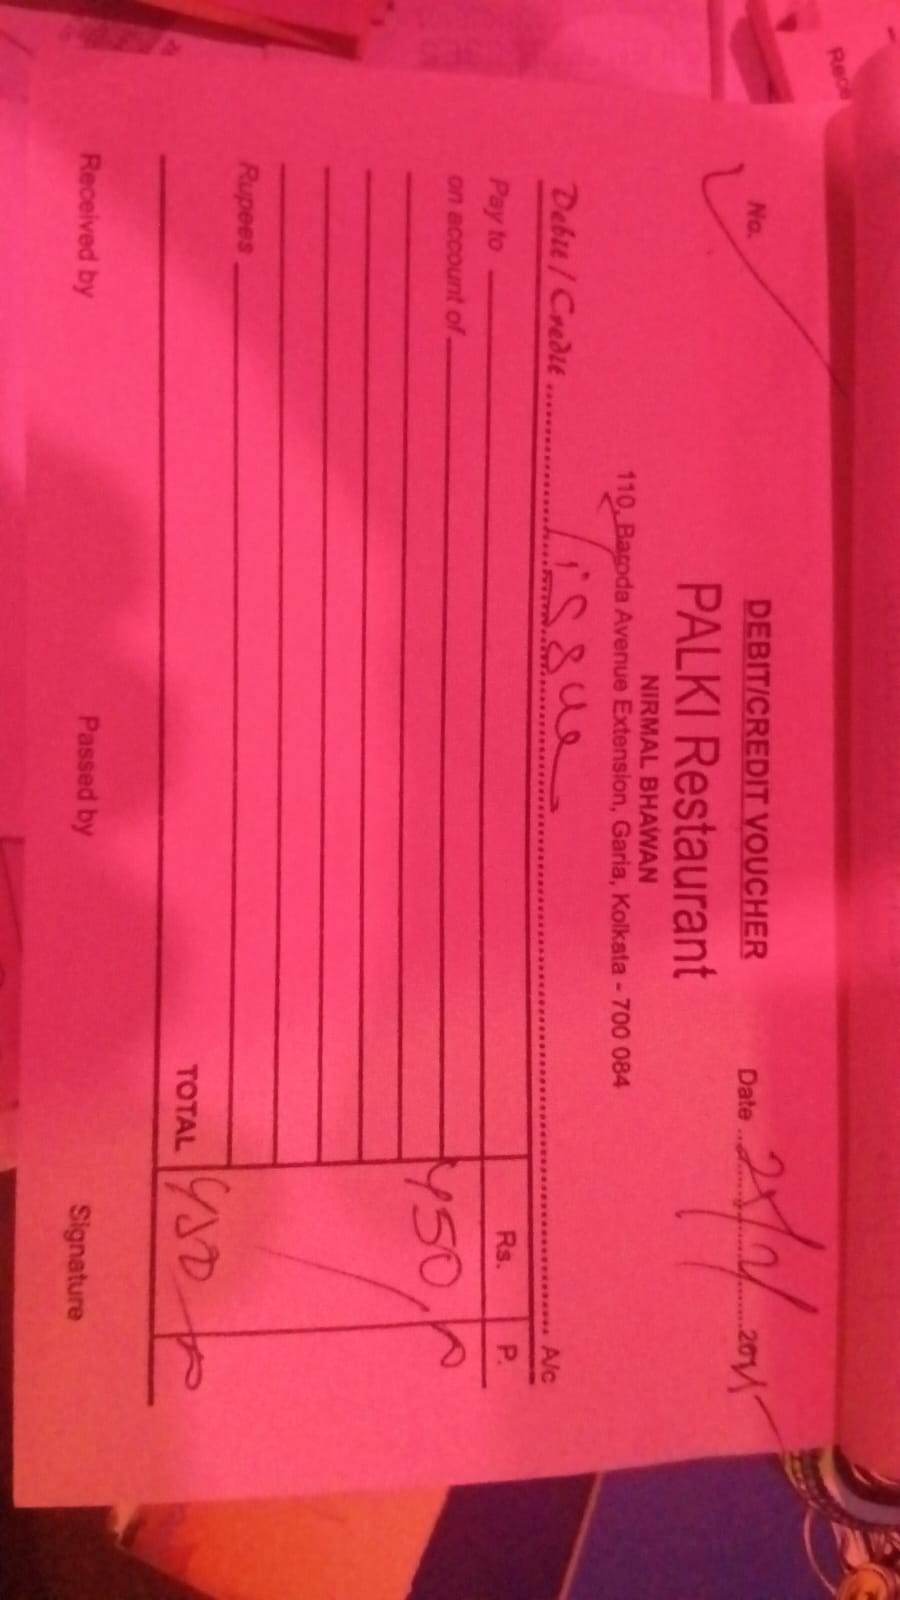 DEBIT/CREDIT VOUCHER
No.
Date
PALKI Restaurant
NIRMAL BHAWAN
110, Baroda Avenue Extension, Garia, Kolkata - 700 084
Debit / Credit issue A/c
Pay to Rs. P.
on account of
450/-
Rupees
TOTAL 450/-
Received by Passed by Signature